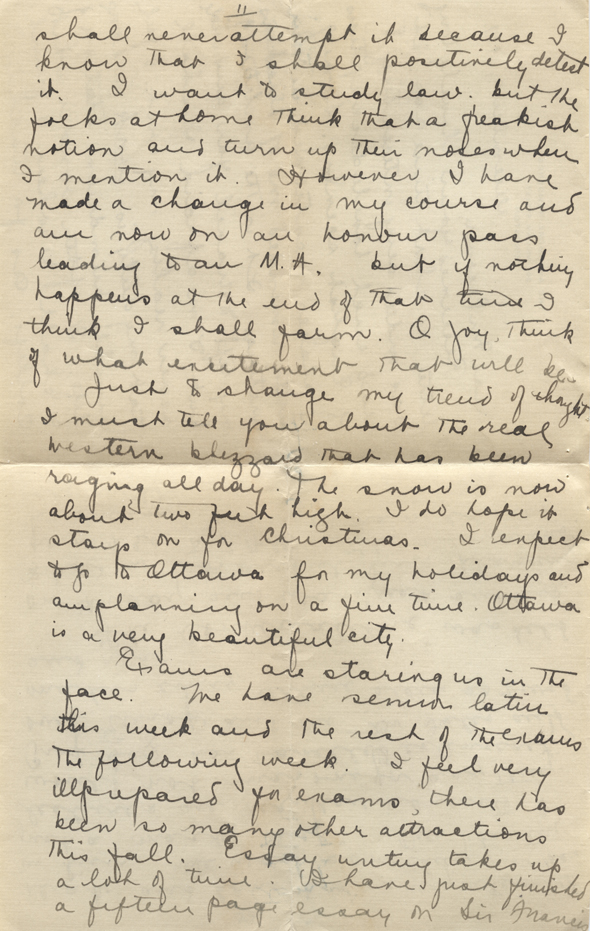 11
shall never attempt it because I
know that I shall positively detest
it. I want to study law. but the
folks at home think that a freakish
notion and turn up their noses when
I mention it. However I have
made a change in my course and
am now on an honour pass
leading to an M.A. but if nothing
happens at the end of that time I
think I shall farm. O joy, think
of what excitement that will be.
Just to change my trend of thought
I must tell you about the real
western blizzard that has been
raging all day. The snow is now
about two feet high. I do hope it
stays on for Christmas. I expect
to go to Ottawa for my holidays and
am planning on a fine time. Ottawa
is a very beautiful city.
Exams are staring us in the
face. We have senior latin
this week and the rest of the exams
the following week. I feel very
illprepared for exams, there has
been so many other attractions
this fall. Essay writing takes up
a lot of time. I have just finished
a fifteen page essay on Sir Francis